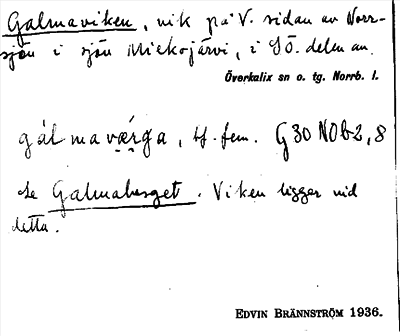 Galmaviken, vik på V. sidan av Norr-
sjön i sjön Miekojärvi, i SÖ. delen av
Överkalix sn o. tg. Norrb. l.
gálmavǽrga, bf. fem. G30 NOb2,8
Se Galmaberget. Viken ligger vid
detta.
EDVIN BRÄNNSTRÖM 1936.